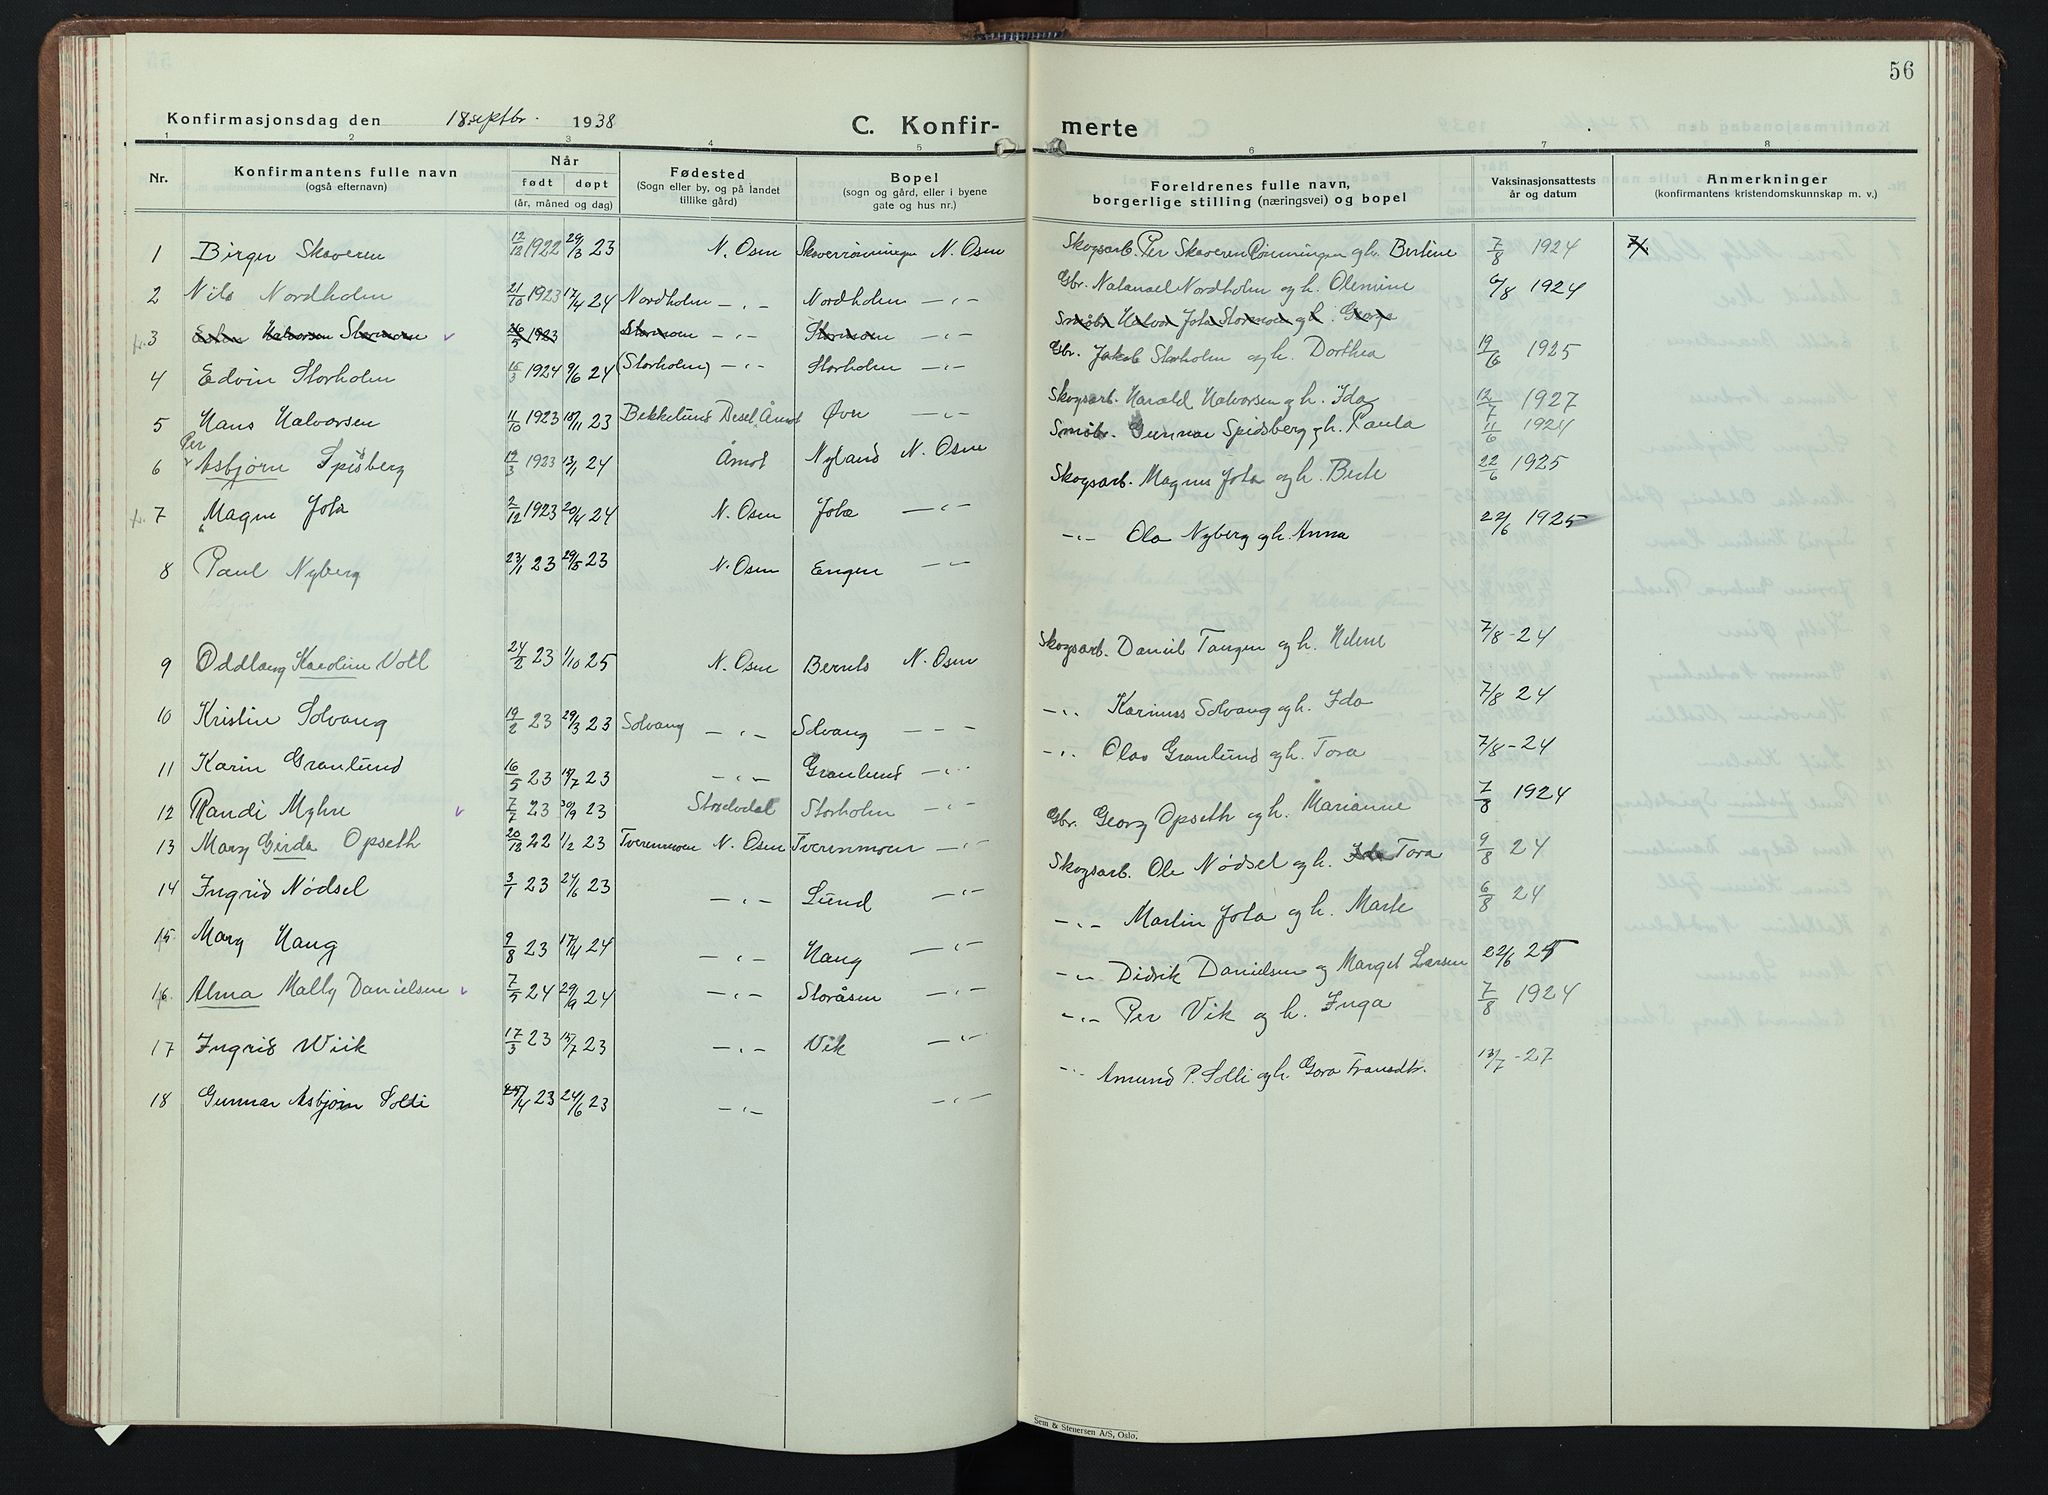 56
Konfirmasjonsdag den 18 septbr. 1938
C. Konfir-merte
1 2 3 4 5 6 7 8
Nr.
Konfirmantens fulle navn
(også efternavn)
Når
født døpt
(år, måned og dag)
Fødested
(Sogn eller by, og på landet
tillike gård)
Bopel
(sogn og gård, eller i byene
gate og hus nr.)
Foreldrenes fulle navn,
borgerlige stilling (næringsvei) og bopel
Vaksinasjonsattests
år og datum
Anmerkninger
(konfirmantens kristendomskunnskap m. v.)
1 Birger Skaveren 17/12 1922 29/3 23 N. Osen Skaverrønningen N. Osen Skogsarb. Per Skaveren Rønningen og h. Bertine 7/8 1924
2 Nils Nordholm 21/10 1923 17/4 24 Nordholm -"- Nordholm -"- Gbr. Natanael Nordholm og h. Olemine 6/8 1924
3 Halvorsen Stormoen 26/5 1923 Stormoen -"- Stormoen -"- Småbr. Halvor Jota Stormoen og h.
4 Edvin Storholm 15/3 1924 9/6 24 (Storholm) -"- Storholm -"- Gbr. Jakob Storholm og h. Dorthea 19/6 1925
5 Hans Halvorsen 11/10 1923 18/11 23 Bekkelund Deset Åmot Øvre -"- Skogsarb. Harald Halvorsen og h. Ida 12/7 1927
Per
6 Asbjørn Spidsberg 19/3 1923 13/1 24 Åmot Nyland N. Osen Småbr. Gunnar Spidsberg og h. Paula 11/6 1924
7 Magne Jota 2/12 1923 20/4 24 N. Osen Jota -"- Skogsarb. Magnus Jota og h. Berte 22/6 1925
8 Paul Nyberg 23/1 23 29/5 23 N. Osen Engen -"- -"- Ola Nyberg og h. Anna 22/6 1925
9 Oddlaug Karoline Voll 24/2 23 1/10 25 N. Osen Bernts N. Osen Skogsarb. Daniel Tangen og h. Helene 7/8-24
10 Kristin Solvang 19/2 23 29/3 23 Solvang -"- Solvang - - - -"- Karinus Solvang og h. Ida 7/8 24
11 Karin Granlund 16/5 23 15/7 23 -"- Granlund -"- -"- Olav Granlund og h. Tora 7/8-24
12 Randi Myhre 7/7 23 30/9 23 Storelvdal Storholm -"-
13 Mary Gerda Opseth 20/12 22 1/2 23 Tverrmoen N. Osen Tverrmoen -"- Gbr. Georg Opseth og h. Marianne 7/8 1924
14 Ingrid Nødsel 3/1 23 24/6 23 -"- Lund -"- Skogsarb. Ole Nødsel og h. Tora 9/8 24
15 Mary Haug 9/8 23 17/4 24 -"- Haug -"- -"- Martin Jota og h. Marte 6/8 24
16 Alma Mally Danielsen 7/5 24 29/9 24 -"- Storåsen -"- -"- Didrik Danielsen og Marget Larsen 22/6 25
17 Ingrid Wiik 17/3 23 15/7 23 -"- Vik -"- -"- Per Vik og h. Inga 7/8 1924
18 Gunnar Asbjørn Solli 25/4 23 24/6 23 -"- -"- -"- Amund P. Solli og h. Gora Fransdtr. 13/7-27
Sem & Stenersen A/S, Oslo.